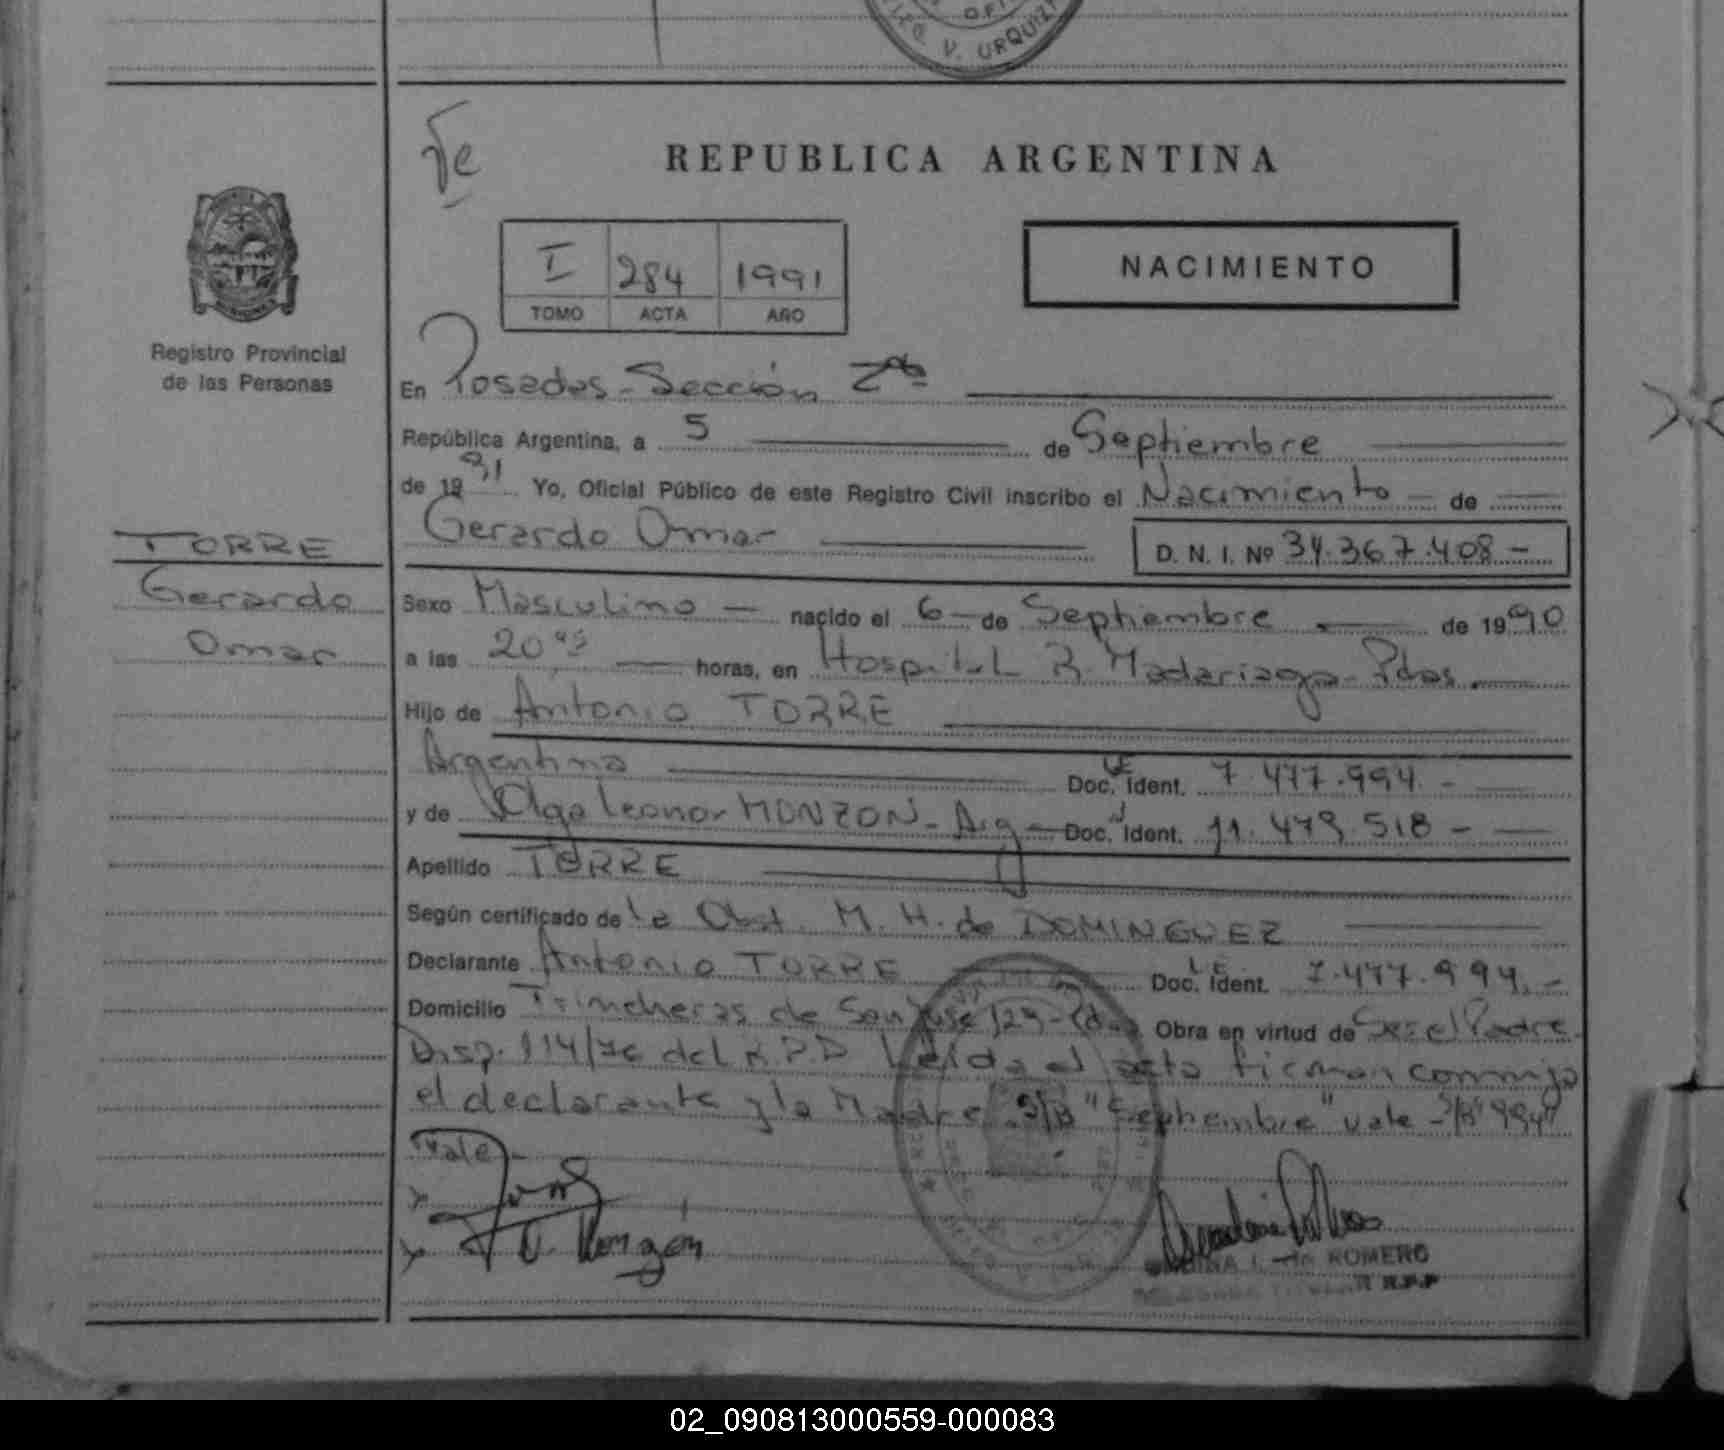 V. URQUIZA
REPUBLICA ARGENTINA
I 284 1991
TOMO ACTA AÑO
NACIMIENTO
Registro Provincial
de las Personas
En Posadas - Sección
República Argentina, a 5 de Septiembre
de 1991 Yo, Oficial Público de este Registro Civil inscribo el Nacimiento de
Gerardo Omar D. N. I. Nº 34.367.408.-
TORRE
Gerardo
Omar
Sexo Masculino nacido el 6 de Septiembre de 1990
a las 20 horas, en Hospital R. Madariaga - Pdas.
Hijo de Antonio TORRE
Argentino Doc. Ident. LE 7.477.994.-
y de Olga Leonor MONZON - Arg Doc. Ident. 11.479.518 -
Apellido TORRE
Según certificado de la Obst. M. H. de DOMINGUEZ
Declarante Antonio TORRE Doc. Ident. LE 7.477.994.-
Domicilio Trincheras de San José Obra en virtud de Ser el Padre.
Disp. 114/76 del R.P.P Leída el acta firman conmigo
el declarante y la Madre. S/B "Septiembre" vale - S/B "994"
Vale.-
Monzón
de ROMERO
R.P.P
02_090813000559-000083